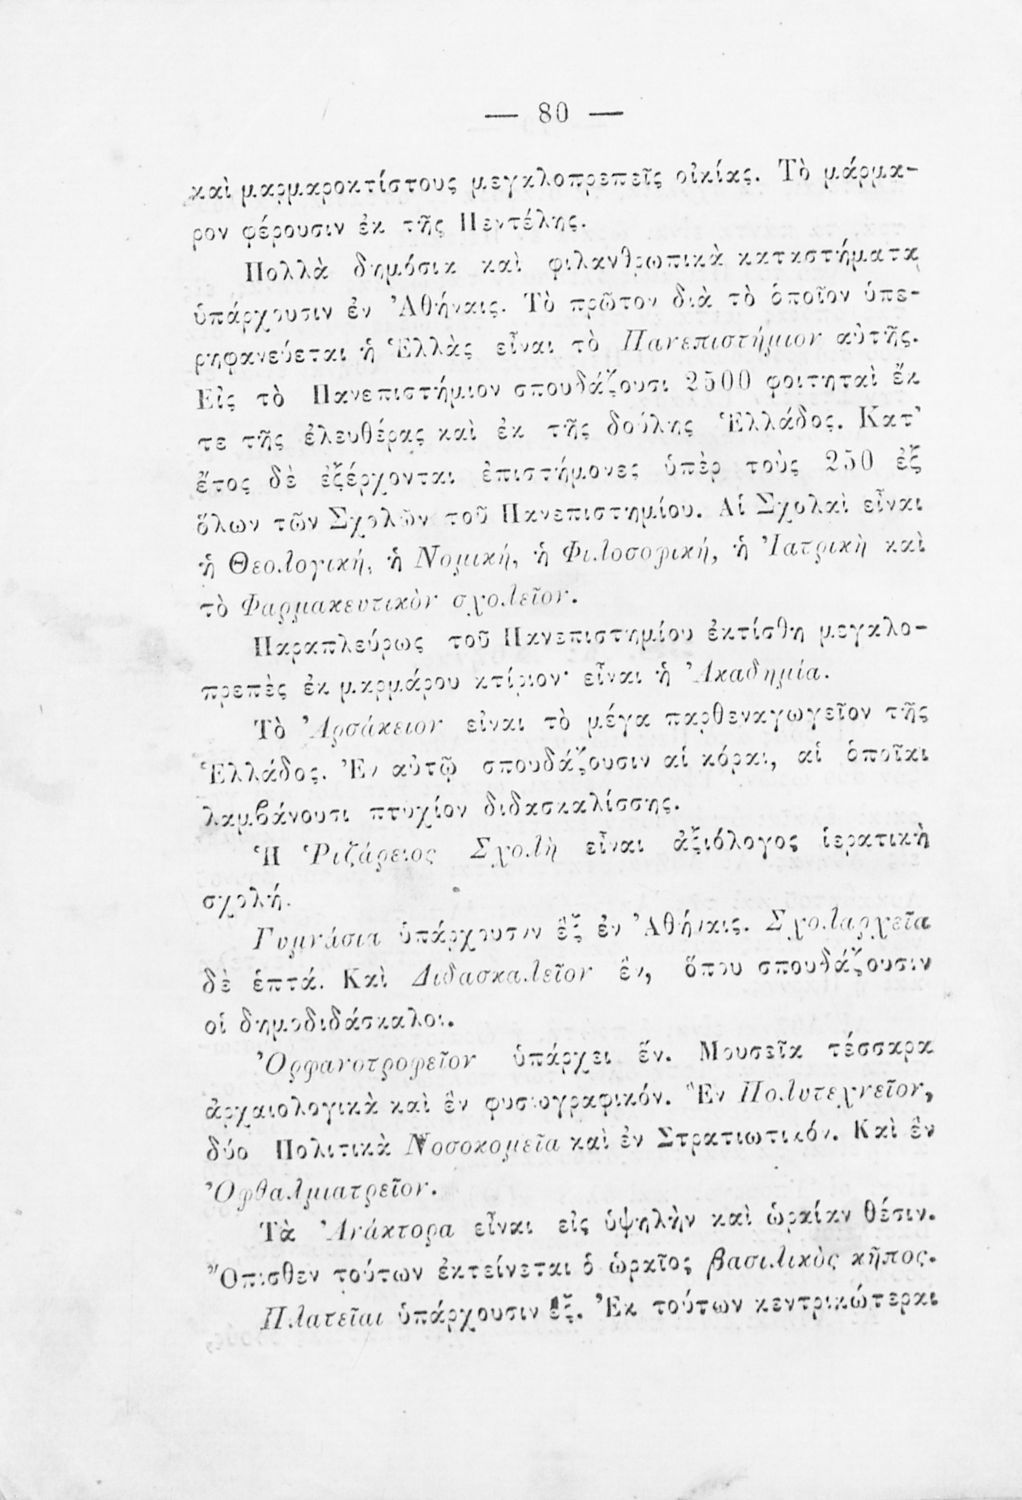 — 80 —
καὶ μαρμαροκτίστους μεγαλοπρεπεῖς οἰκίας. Τὸ μάρμα-
ρον φέρουσιν ἐκ τῆς Πεντέλης.
Πολλὰ δημόσια καὶ φιλανθρωπικὰ καταστήματα
ὑπάρχουσιν ἐν Ἀθήναις. Τὸ πρῶτον διὰ τὸ ὁποῖον ὑπε-
ρηφανεύεται ἡ Ἑλλὰς εἶναι τὸ Πανεπιστήμιον αὐτῆς.
Εἰς τὸ Πανεπιστήμιον σπουδάζουσι 2500 φοιτηταὶ ἔκ
τε τῆς ἐλευθέρας καὶ ἐκ τῆς δούλης Ἑλλάδος. Κατ'
ἔτος δὲ ἐξέρχονται ἐπιστήμονες ὑπὲρ τοὺς 250 ἐξ
ὅλων τῶν Σχολῶν τοῦ Πανεπιστημίου. Αἱ Σχολαὶ εἶναι
ἡ Θεολογική, ἡ Νομική, ἡ Φιλοσοφική, ἡ Ἰατρικὴ καὶ
τὸ Φαρμακευτικὸν σχολεῖον.
Παραπλεύρως τοῦ Πανεπιστημίου ἐκτίσθη μεγαλο-
πρεπὲς ἐκ μαρμάρου κτίριον· εἶναι ἡ Ἀκαδημία.
Τὸ Ἀρσάκειον εἶναι τὸ μέγα παρθεναγωγεῖον τῆς
Ἑλλάδος. Ἐν αὐτῷ σπουδάζουσιν αἱ κόραι, αἱ ὁποῖαι
λαμβάνουσι πτυχίον διδασκαλίσσης.
Ἡ Ῥιζάρειος Σχολὴ εἶναι ἀξιόλογος ἱερατικὴ
σχολή.
Γυμνάσια ὑπάρχουσιν ἓξ ἐν Ἀθήναις. Σχολαρχεῖα
δὲ ἑπτά. Καὶ Διδασκαλεῖον ἓν, ὅπου σπουδάζουσιν
οἱ δημοδιδάσκαλοι.
Ὀρφανοτροφεῖον ὑπάρχει ἕν. Μουσεῖα τέσσαρα
ἀρχαιολογικὰ καὶ ἓν φυσιογραφικόν. Ἓν Πολυτεχνεῖον,
δύο Πολιτικὰ Νοσοκομεῖα καὶ ἓν Στρατιωτικόν. Καὶ ἓν
Ὀφθαλμιατρεῖον.
Τὰ Ἀνάκτορα εἶναι εἰς ὑψηλὴν καὶ ὡραίαν θέσιν.
Ὄπισθεν τούτων ἐκτείνεται ὁ ὡραῖος βασιλικὸς κῆπος.
Πλατεῖαι ὑπάρχουσιν ἓξ. Ἐκ τούτων κεντρικώτεραι